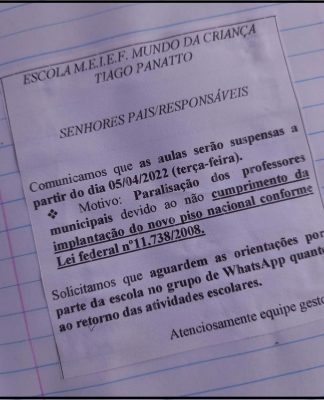 ESCOLA M.E.I.E.F. MUNDO DA CRIANÇA
TIAGO PANATTO
SENHORES PAIS/RESPONSÁVEIS
Comunicamos que as aulas serão suspensas a
partir do dia 05/04/2022 (terça-feira).
❖ Motivo: Paralisação dos professores
municipais devido ao não cumprimento da
implantação do novo piso nacional conforme
Lei federal nº11.738/2008.
Solicitamos que aguardem as orientações por
parte da escola no grupo de WhatsApp quanto
ao retorno das atividades escolares.
Atenciosamente equipe gesto